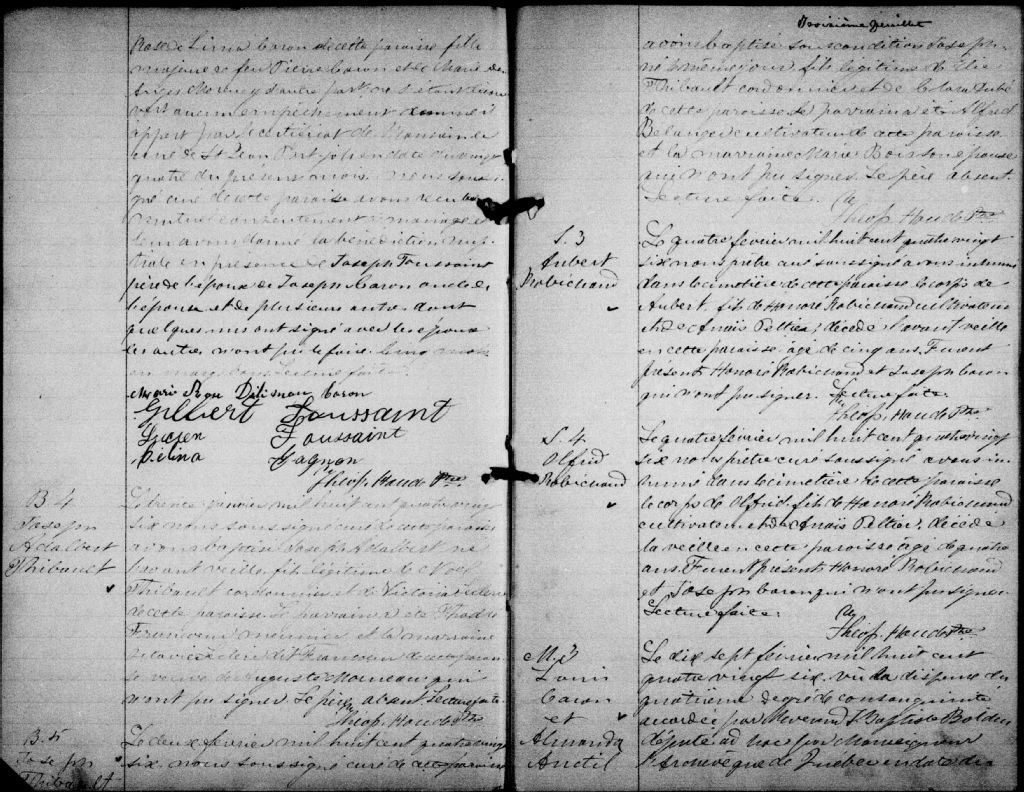 Rose de Lima Caron de cette paroisse fille
majeure de feu Pierre Caron et de Marie des
Anges d'autre part, ne s'étant decou
vert aucun empêchement comme il
appert par le certificat de Monsieur le
curé de St Jean Port-joli en date du vingt
quatre du present mois nous soussi
gné curé de cette paroisse avons recu leur
mutuel consentement de mariage et
leur avons donné la bénédiction nup
tiale en presence de Joseph Toussaint
père de l'époux de Joseph Caron oncle de
l'épouse et de plusieurs autres dont
quelques uns ont signé avec les époux
les autres n'ont pu le faire.
en marge bon. Lecture faite.
Marie Rose Caron
Gilbert Toussaint
Lucien Toussaint
Gagnon
Theop. Houde Ptre
B. 4
Joseph
Adalbert
Thibault
Le trente janvier mil huit cent quatre vingt
six nous soussigné curé de cette paroisse
avons baptisé Joseph Adalbert né
l'avant veille fils légitime de Noël
Thibault cordonnier et de Victoria
de cette paroisse. Le parrain a été
Francoeur meunier et la marraine
dit Francoeur de cette parois
se veuve de Auguste Morneau qui
n'ont pu signer. Le père absent. Lecture faite.
Theop. Houde Ptre
B. 5
Joseph
Thibault
Le deux fevrier mil huit cent quatre vingt
six nous soussigné curé de cette paroisse
Troisième feuillet
avons baptisé sous condition Joseph
né le même jour fils légitime de Elie
Thibault cordonnier et de Clara Dubé
de cette paroisse. Le parrain a été Alfred
Belanger cultivateur de cette paroisse
et la marraine Marie Bois son épouse
qui n'ont pu signer. Le père absent.
Lecture faite.
Theop. Houde Ptre
S. 3
Aubert
Robichaud
Le quatre fevrier mil huit cent quatre vingt
six nous prêtre curé soussigné avons inhumé
dans le cimetière de cette paroisse le corps de
Aubert fils de Honoré Robichaud cultivateur
et de Anaïs Peltier, décédé l'avant veille
en cette paroisse âgé de cinq ans. Furent
présents Honoré Robichaud et Joseph Caron
qui n'ont pu signer. Lecture faite.
Theop. Houde Ptre
S. 4
Olfrid
Robichaud
Le quatre fevrier mil huit cent quatre vingt
six nous prêtre curé soussigné avons in
humé dans le cimetière de cette paroisse
le corps de Olfrid fils de Honoré Robichaud
cultivateur et de Anaïs Peltier, décédé
la veille en cette paroisse âgé de quatre
ans. Furent présents Honoré Robichaud
et Joseph Caron qui n'ont pu signer.
Lecture faite.
Theop. Houde Ptre
M. 3
Louis
Caron
et
Almanda
Anctil
Le dix sept fevrier mil huit cent
quatre vingt six, vu la dispense du
quatrième degré de consanguinité
accordée par Reverend J Baptiste Blouin
député ad hoc par Monseigneur
l'Archevêque de Quebec en date du